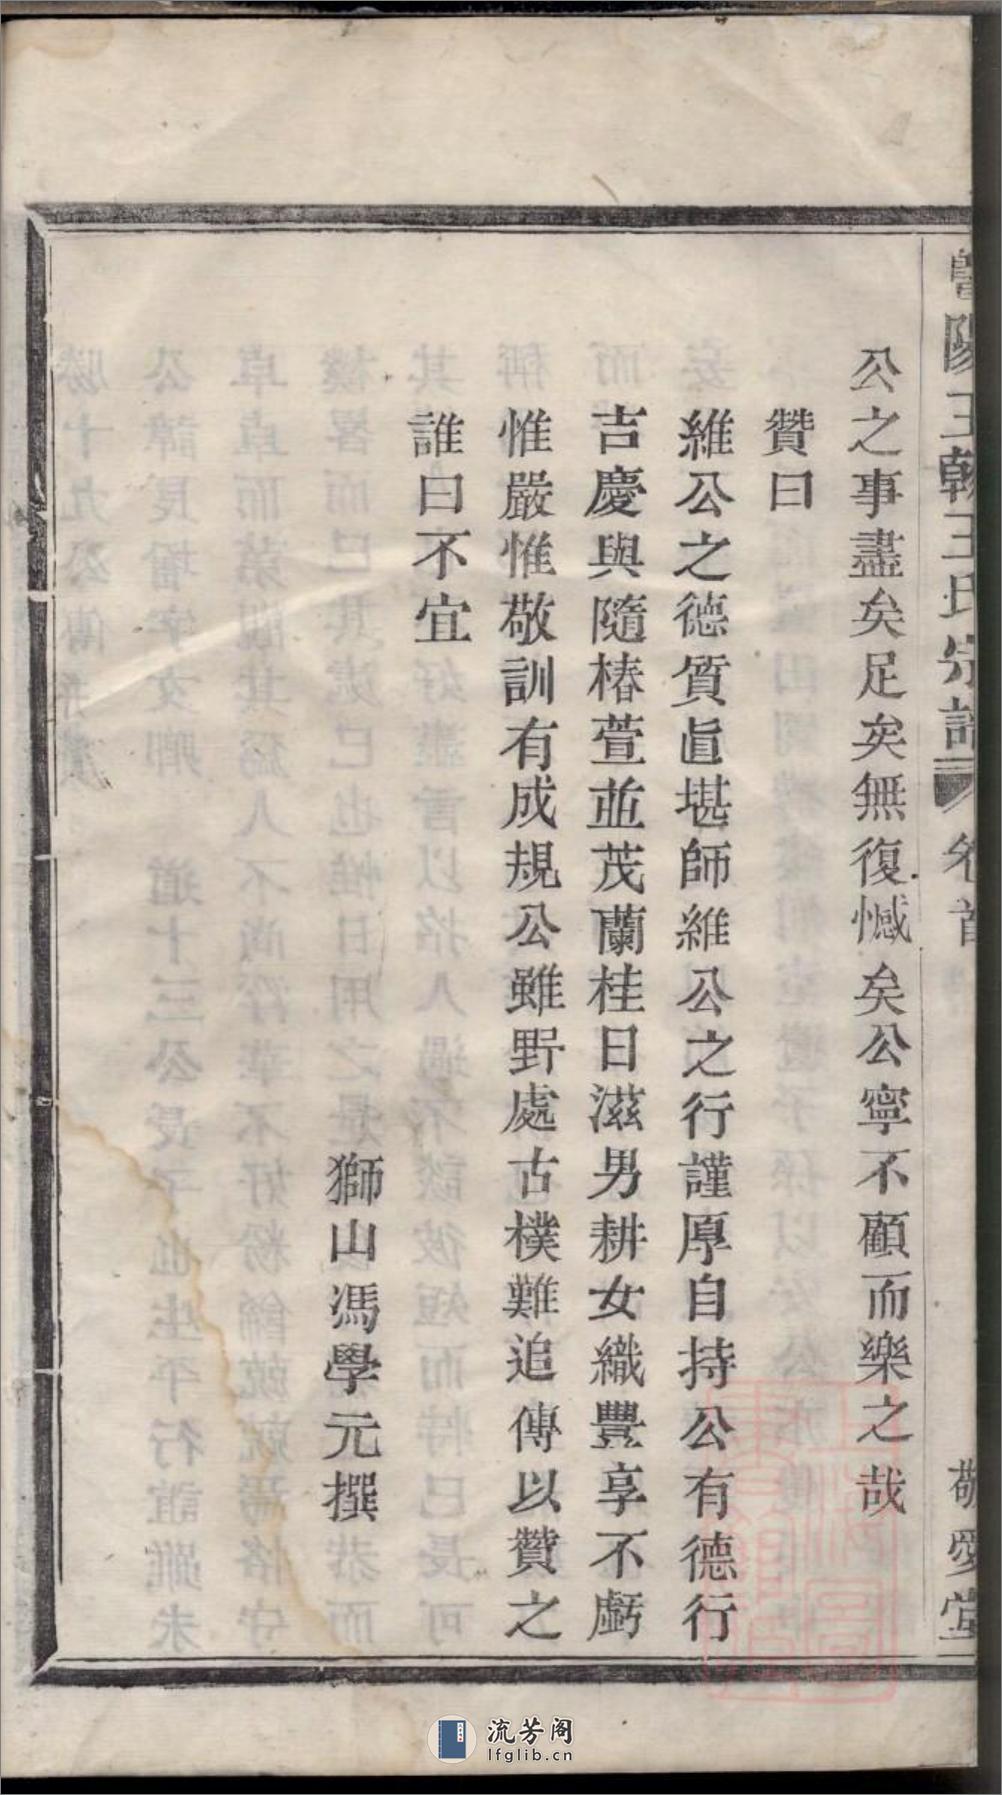 陽王韓王氏宗譜 卷首 敬愛堂
公之事盡矣足矣無復憾矣公寧不顧而樂之哉
贊曰
維公之德質眞堪師維公之行謹厚自持公有德行
吉慶與隨椿萱並茂蘭桂日滋男耕女織豐享不虧
惟嚴惟敬訓有成規公雖野處古樸難追傳以贊之
誰曰不宜
獅山馮學元撰
流芳阁
lfglib.cn